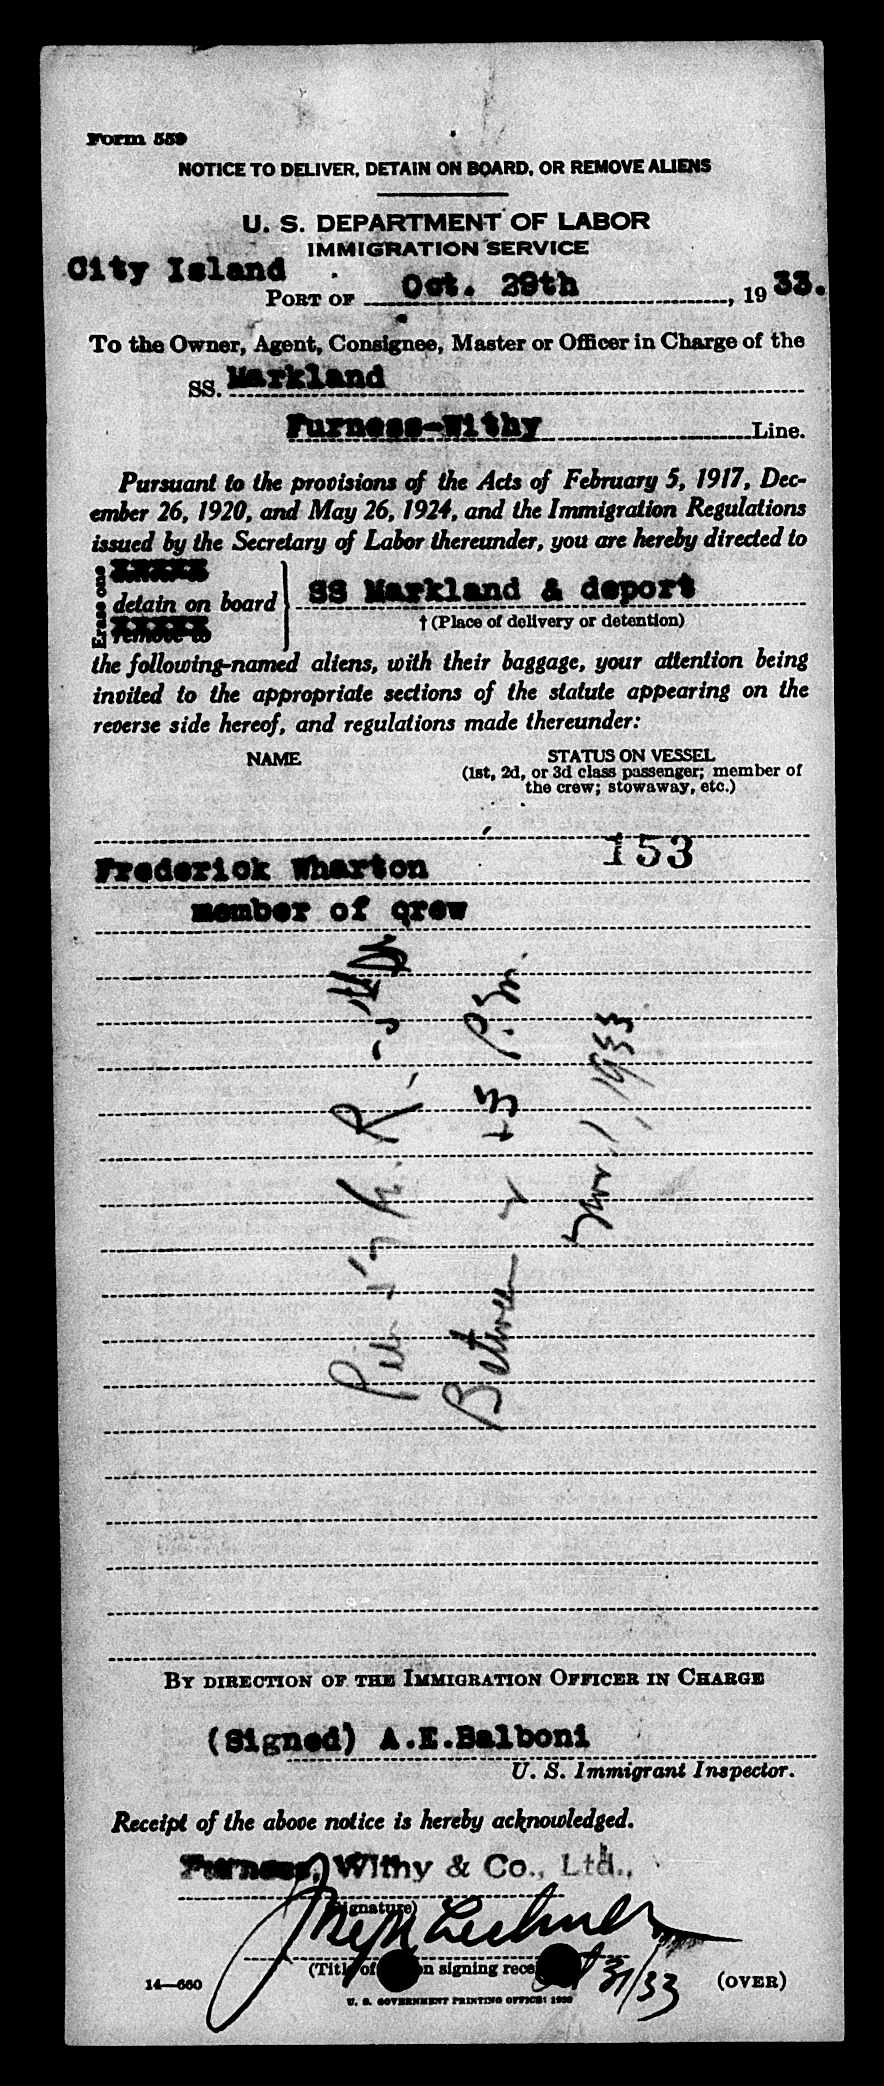 Form 559
NOTICE TO DELIVER, DETAIN ON BOARD, OR REMOVE ALIENS
U. S. DEPARTMENT OF LABOR
IMMIGRATION SERVICE
City Island
PORT OF Oct. 28th, 1933.
To the Owner, Agent, Consignee, Master or Officer in Charge of the
SS. Markland
Furness-Withy Line.
Pursuant to the provisions of the Acts of February 5, 1917, Dec-
ember 26, 1920, and May 26, 1924, and the Immigration Regulations
issued by the Secretary of Labor thereunder, you are hereby directed to
Erase one
detain on board } SS Markland & deport
remove to
† (Place of delivery or detention)
the following-named aliens, with their baggage, your attention being
invited to the appropriate sections of the statute appearing on the
reverse side hereof, and regulations made thereunder:
NAME STATUS ON VESSEL
(1st, 2d, or 3d class passenger; member of
the crew; stowaway, etc.)
153
Frederick Wharton
member of qrew
Pier
Between 2 + 3 P.M.
Nov. 1, 1933
BY DIRECTION OF THE IMMIGRATION OFFICER IN CHARGE
(Signed) A.E.Balboni
U. S. Immigrant Inspector.
Receipt of the above notice is hereby acknowledged.
Furness, Withy & Co., Ltd.,
(Signature)
(Title of n signing rece
31/33
14—660 (OVER)
U. S. GOVERNMENT PRINTING OFFICE: